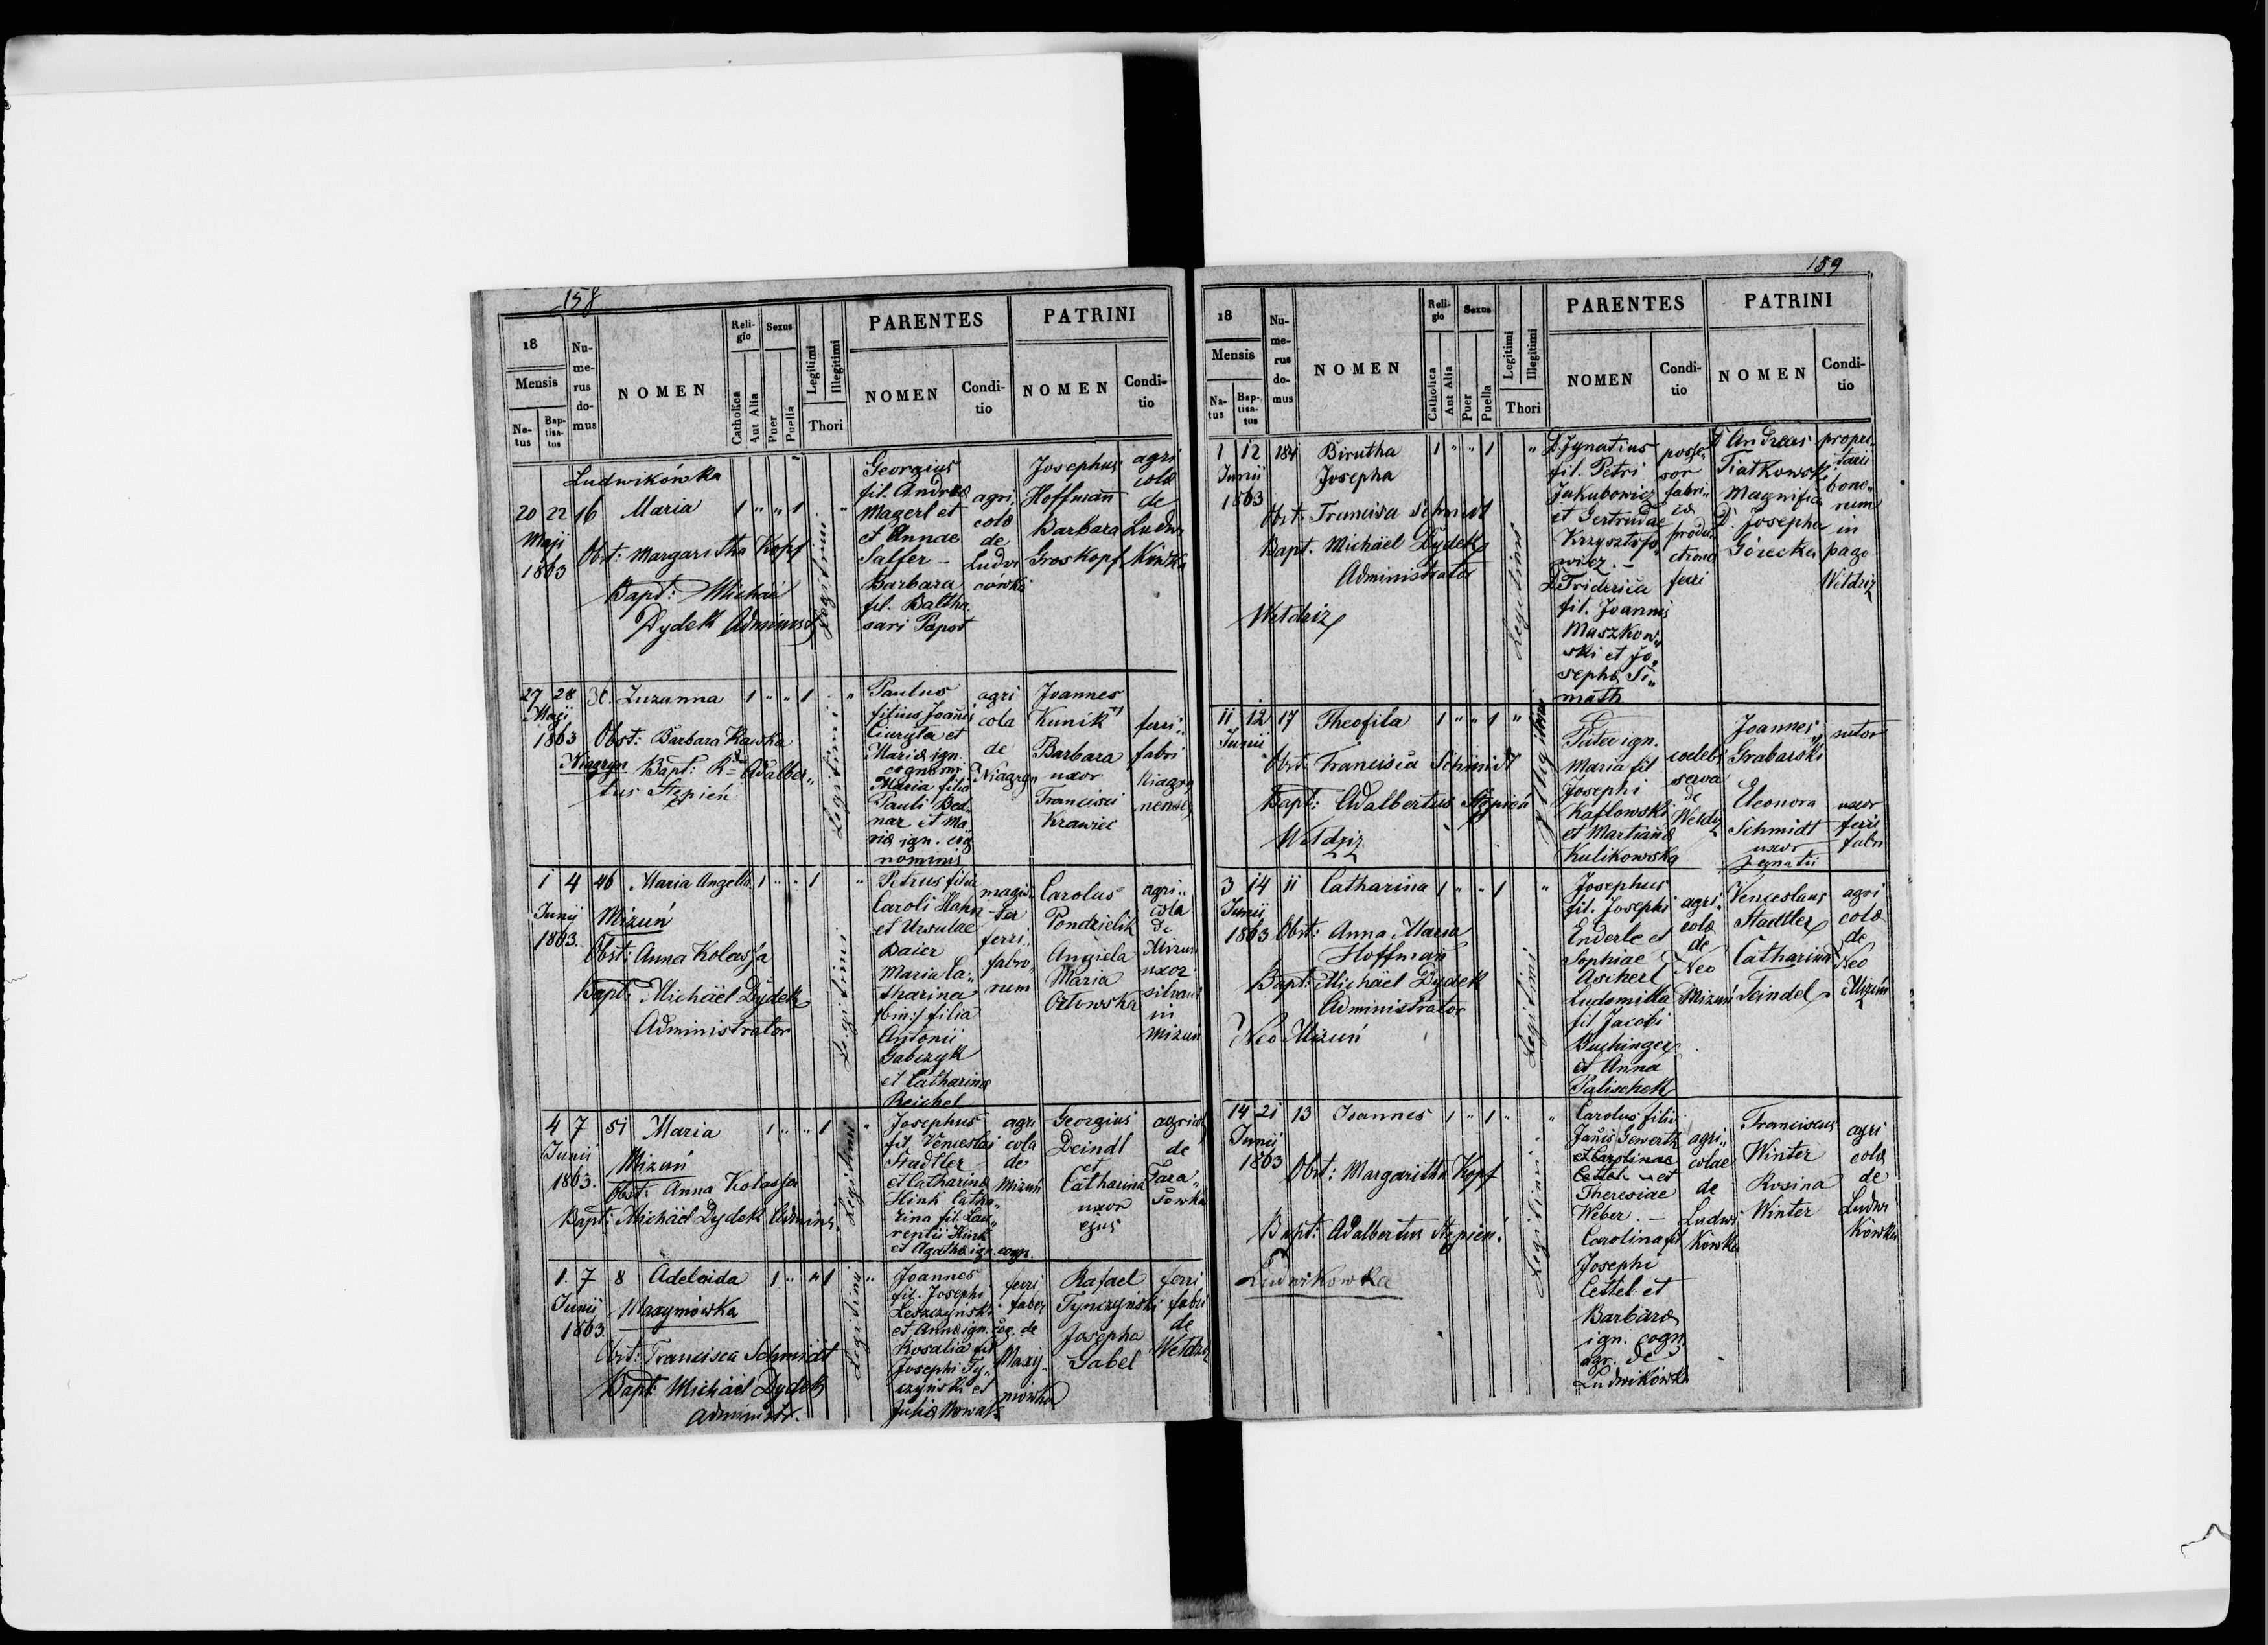 158
18
Mensis
Na-
tus
Bap-
tisa-
tus
Nu-
me-
rus
do-
mus
NOMEN
Reli-
gio
Catholica
Aut Alia
Sexus
Puer
Puella
Legitimi
Illegitimi
Thori
PARENTES
NOMEN
Condi-
tio
PATRINI
NOMEN
Condi-
tio
Ludwikówka
20 22 16 Maria 1 " " 1 "
Maji
1863
Obst: Margaritha Kopf
Bapt: Michaël
Dydek Administ
Legitimi
Georgius
fil. Andreæ
Magerl et
et Annae
Salfer –
Barbara
fil. Baltha
sari Papot
agri
colæ
de
Ludwi
cówka
Josephus
Hoffmañ
Barbara
Groskopf
agri
colæ
de
Ludwi
kówka
27 28 36. Zuzanna 1 " " 1 "
Maji
1863
Obst: Barbara Kawka
Niagryn
Bapt: Rd Adalber"
tus Stępień
Legitimi
Paulus
filius Joañis
Ciuryla et
Mariæ ign.
cognomi
Maria filia
Pauli Bed"
nar et Ma"
riæ ign. cog
nominis
agri
cola
de
Niagryn
Joannes
Kunik
Barbara
uxor
Francisci
Krawiec
ferri"
fabri
Niagry
nenses
1 4 46 Maria Angella 1 " " 1 "
Junij
1863.
Mizuń
Obst: Anna Kolassa
Bapt: Michaël Dydek
Administrator
Legitimi
Petrus filius
Caroli Hahn
et Ursulae
Baier
Maria Ca"
tharina
filia
Antonii
Gabczyk
et Catharinæ
Reichel
magis
ter
ferri"
fabro"
rum
Carolus
Pondzielik
Angiela
Maria
Orłowska
agri"
cola
de
Mizun
uxor
silvani
in
Mizun
4 7 51 Maria 1 " " 1 "
Junii
1863.
Mizuń
Obst: Anna Kolassa
Bapt: Michaël Dydek Admins.
Legitimi
Josephus
fil. Venceslai
Stadtler
et Catharinæ
Hink Catha"
rina fil. Lau"
rentii Hink
et Agathæ ign. cogn.
agri
cola
de
Mizuń
Georgius
Deindl
et
Catharina
uxor
ejus
agricolæ
de
Tara"
sowka
1. 7 8 Adelaida 1 " " 1 "
Junii
1863.
Maxymówka
Obst: Francisca Schmidt
Bapt: Michaël Dydek
Administr.
Legitimi
Joannes
fil. Josephi
Leszczyński
et Annæ ign. cog.
Rosalia fil
Josephi Ty"
czyński et
Juliæ Nowak
ferri
faber
de
Maxy"
mówka
Rafael
Tynczyński
Josepha
Gabel
ferri
fabri
de
Wełdziz
159
18
Mensis
Na-
tus
Bap-
tisa-
tus
Nu-
me-
rus
do-
mus
NOMEN
Reli-
gio
Catholica
Aut Alia
Sexus
Puer
Puella
Legitimi
Illegitimi
Thori
PARENTES
NOMEN
Condi-
tio
PATRINI
NOMEN
Condi-
tio
1 12 184 Birutha 1 " " 1 "
Junii
1863
Josepha
Obst: Francisca Schmidt
Bapt. Michaël Dydek
Administrator
Wełdziz
Legitimi
D. Ignatius
fil. Petri
Jakubowicz
et Gertrudae
Krzysztofo"
wicz. –
D Friderica
fil. Joannis
Muszkow"
ski et Jo"
sephæ Si"
math
posse"
sor
fabri"
cæ
produ"
ctionis
ferri
D Andreas
Fiatkowski
Magnifica
D. Josepha
Górecka
propri"
etarii
bono"
rum
in
pago
Wełdziz
11 12 17 Theofila 1 " " 1 "
Junii
Obst: Francisca Schmidt
Bapt: Adalbertus Stępień
Wełdziz
Illegitimi
Pater ign.
Maria fil
Josephi
Kasłowski
et Martiannæ
Kulikowska
coelebs
serva
de
Wełdz
Joannes
Grabarski
Eleonora
Schmidt
uxor
Ignatii
sutor
uxor
ferri
fabri
3 14 11 Catharina 1 " " 1 "
Junii
1863
Obst: Anna Maria
Hoffmañ
Bapt: Michaël Dydek
Administrator
Neo Mizuń
Legitimi
Josephus
fil. Josephi
Enderle et
Sophiae
Ascherl
Ludomilla
fil Jacobi
Buchinger
et Anna
Palischek
agri"
colæ
de
Neo
Mizuń
Venceslaus
Stadtler
Catharina
Teindel
agri
colæ
de
Neo
Mizuń
14 21 13 Joannes 1 " 1 " "
Junii
1863
Obst: Margaritha Kopf
Bapt: Adalbertus Stępień.
Ludwikowka
Legitimi
Carolus filius
Jañis Gewerth
et Carolinae
Cettel – et
Theresiae
Weber. –
Carolina fil
Josephi
Cettel et
Barbaræ
ign. cogn.
agr. de
Ludwikówka
agri"
colae
de
Ludwi
kówka
Franciscus
Winter
Rosina
Winter
agri
colæ
de
Ludwi
kówka